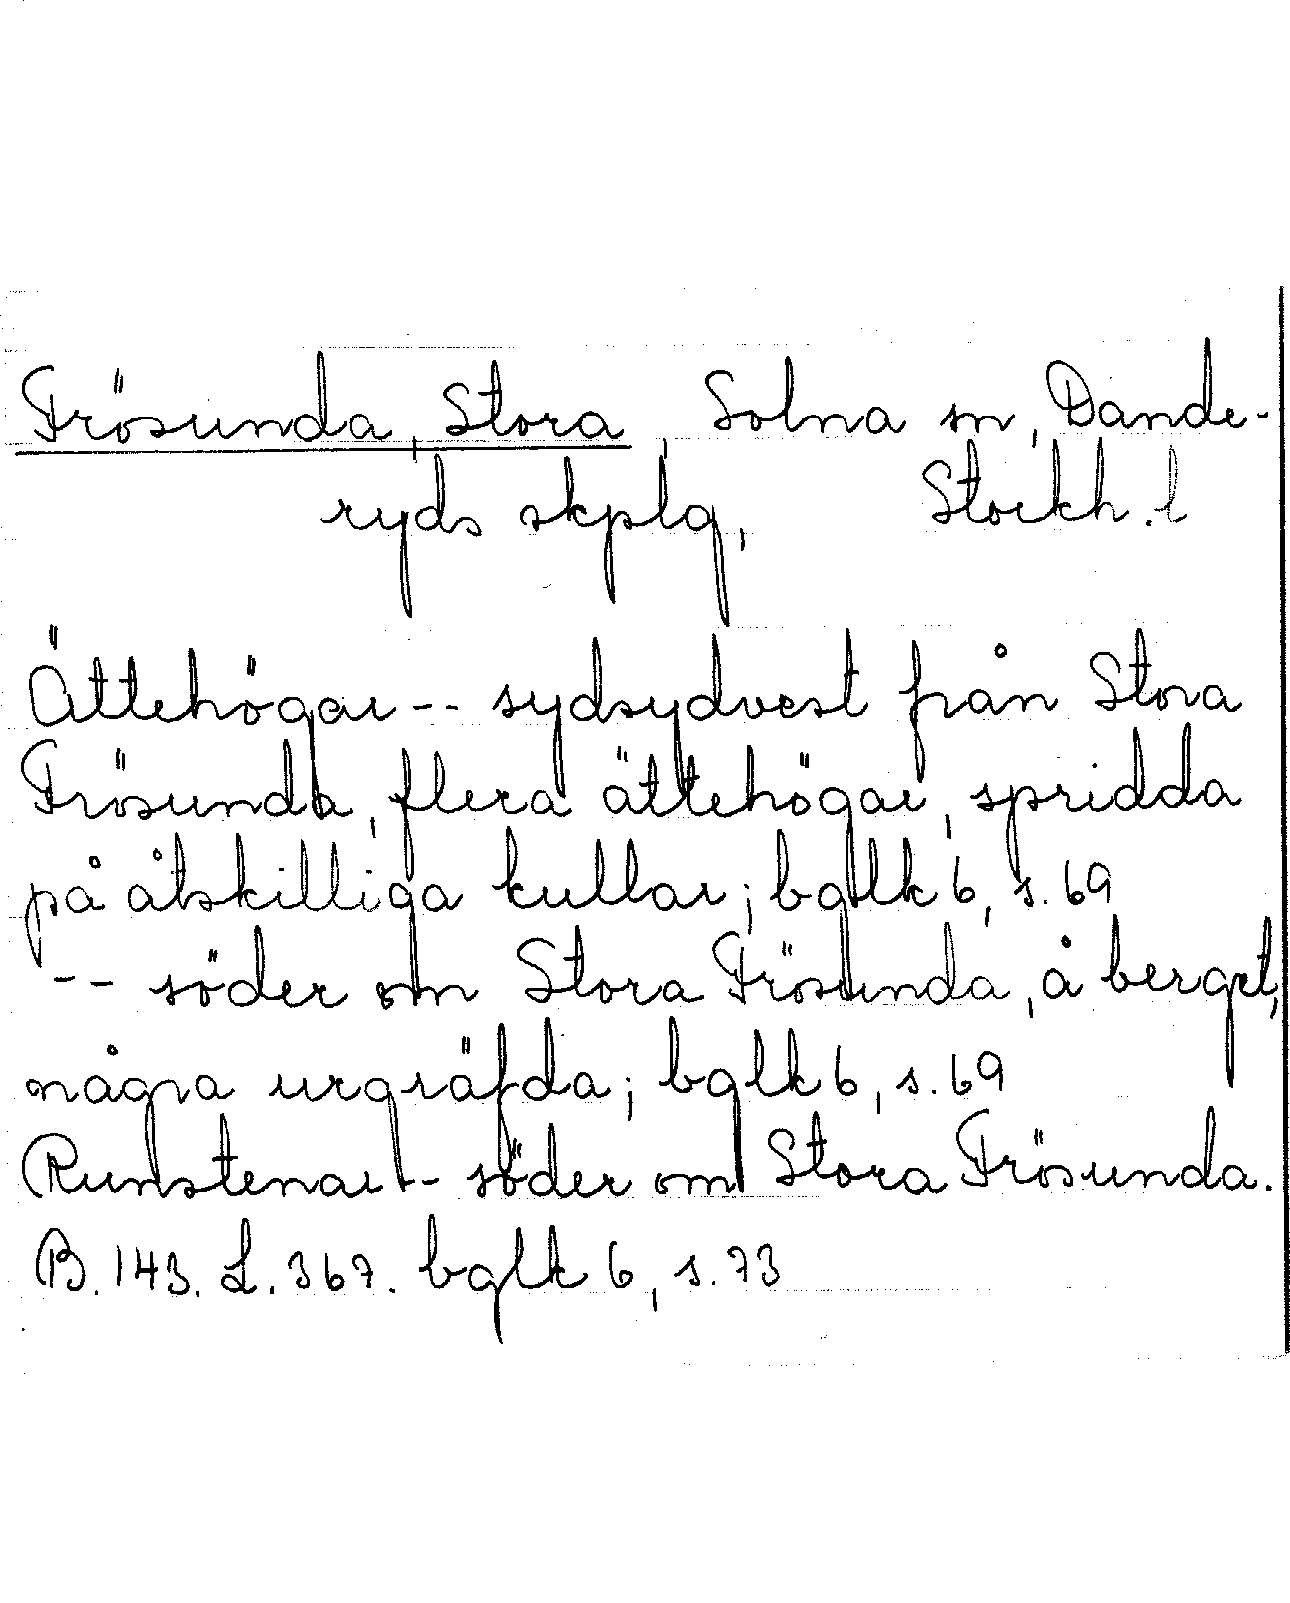 Frösunda, Stora, Solna sn, Dande-
ryds skplg, Stockh. l
Ättehögar -- sydsydvest från Stora
Frösunda, flera ättehögar, spridda
på åtskilliga kullar; bglk 6, s. 69
-- söder om Stora Frösunda, å berget,
några urgräfda; bglk 6, s. 69
Runstenar -- söder om Stora Frösunda.
B. 143. L. 367. bglk 6, s. 73